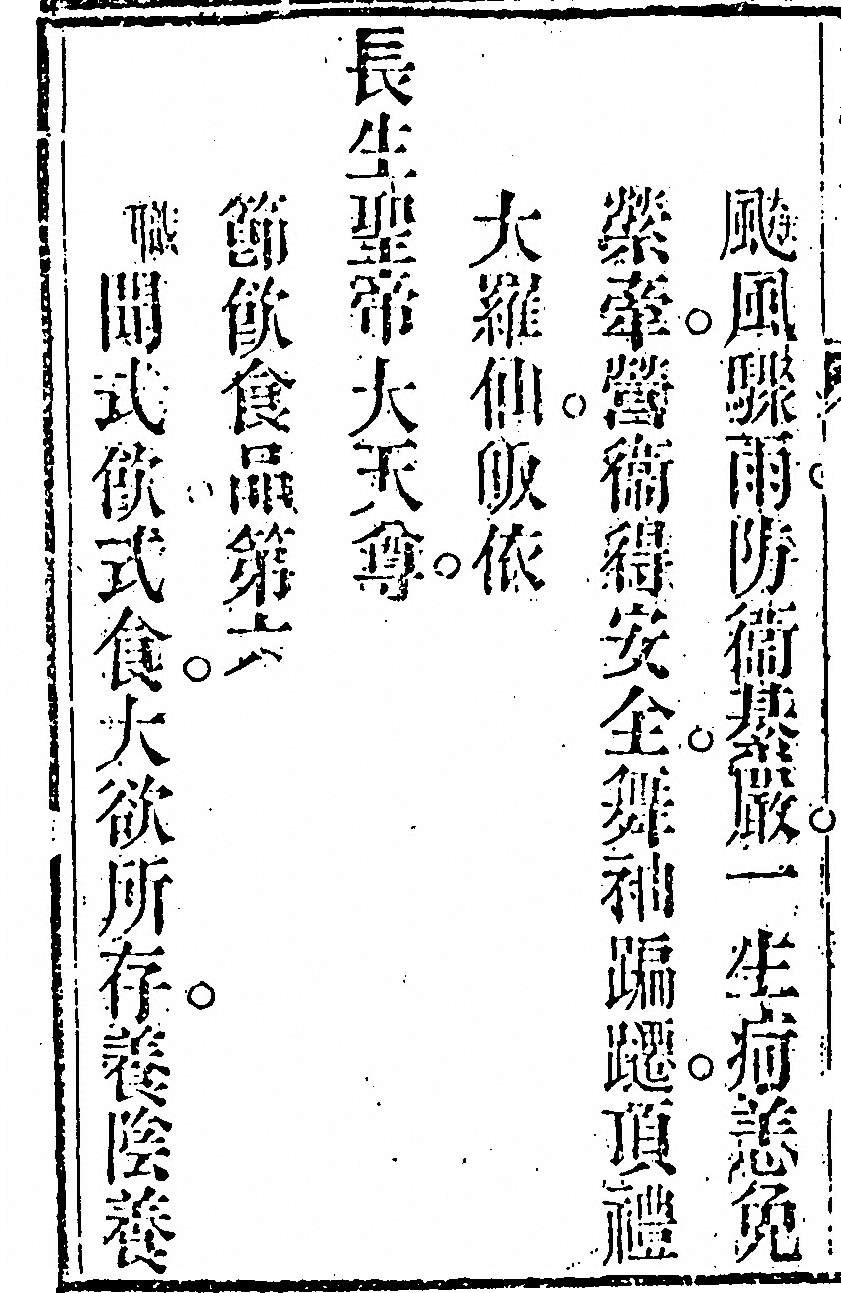 颺風驟雨防衞綦嚴一生病恙免
縈牽營衞得安全舞袖蹁躚頂禮
大羅仙皈依
長生聖帝大天尊
節飲食品第六
職聞式飲式食大欲所存養陰養